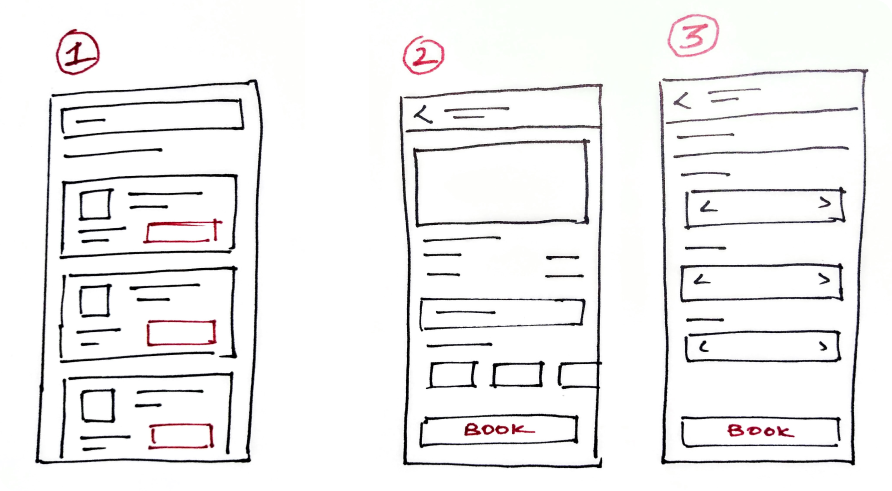 1
2
3
BOOK
BOOK